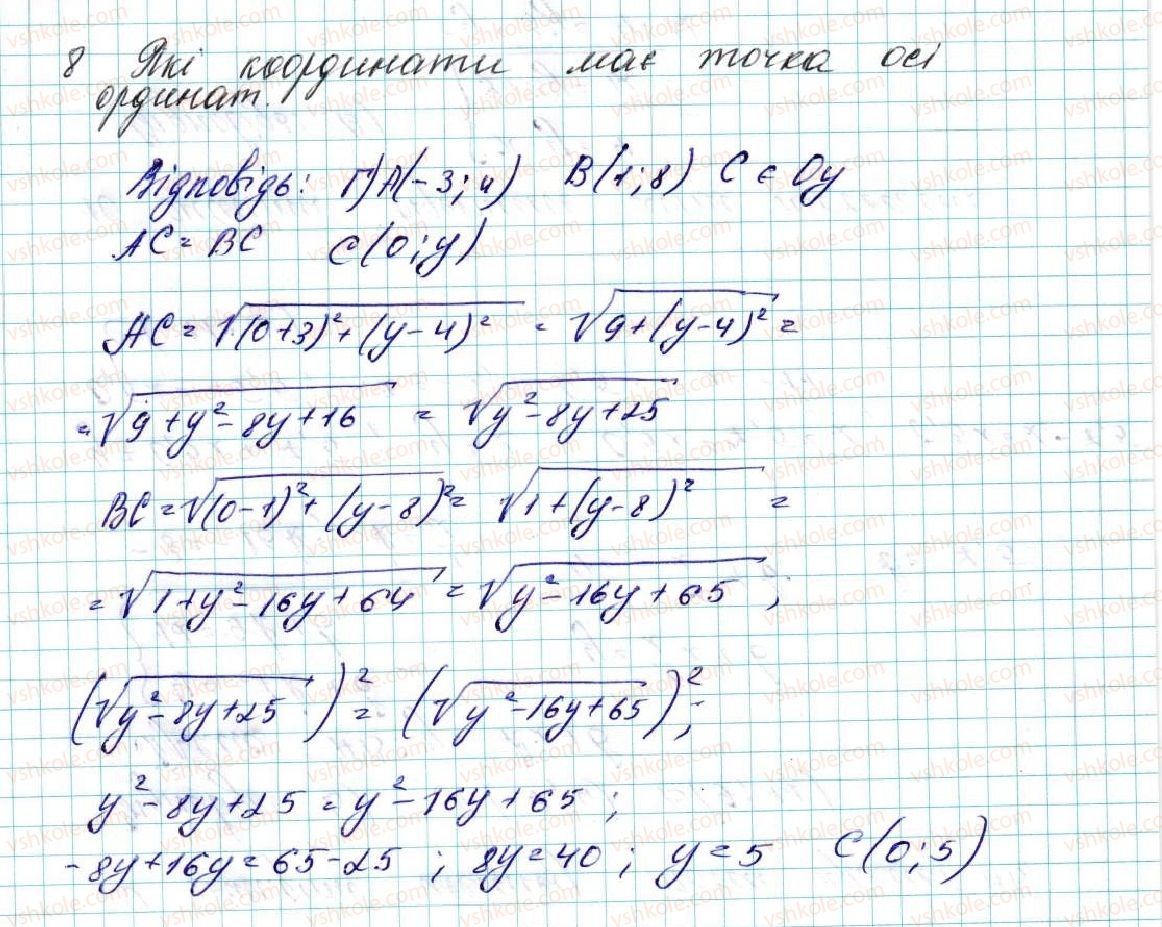 8 Які координати має точка осі
ординат.
Відповідь: Г) A(-3; 4) B(1; 8) C ∈ Oy
AC = BC C(0; y)
AC = √(0+3)²+(y-4)² = √9+(y-4)² =
= √9+y²-8y+16 = √y²-8y+25
BC = √(0-1)²+(y-8)² = √1+(y-8)² =
= √1+y²-16y+64 = √y²-16y+65 ;
(√y²-8y+25)² = (√y²-16y+65)² ;
y²-8y+25 = y²-16y+65 ;
-8y+16y = 65-25 ; 8y = 40 ; y = 5 C(0; 5)
vshkole.com